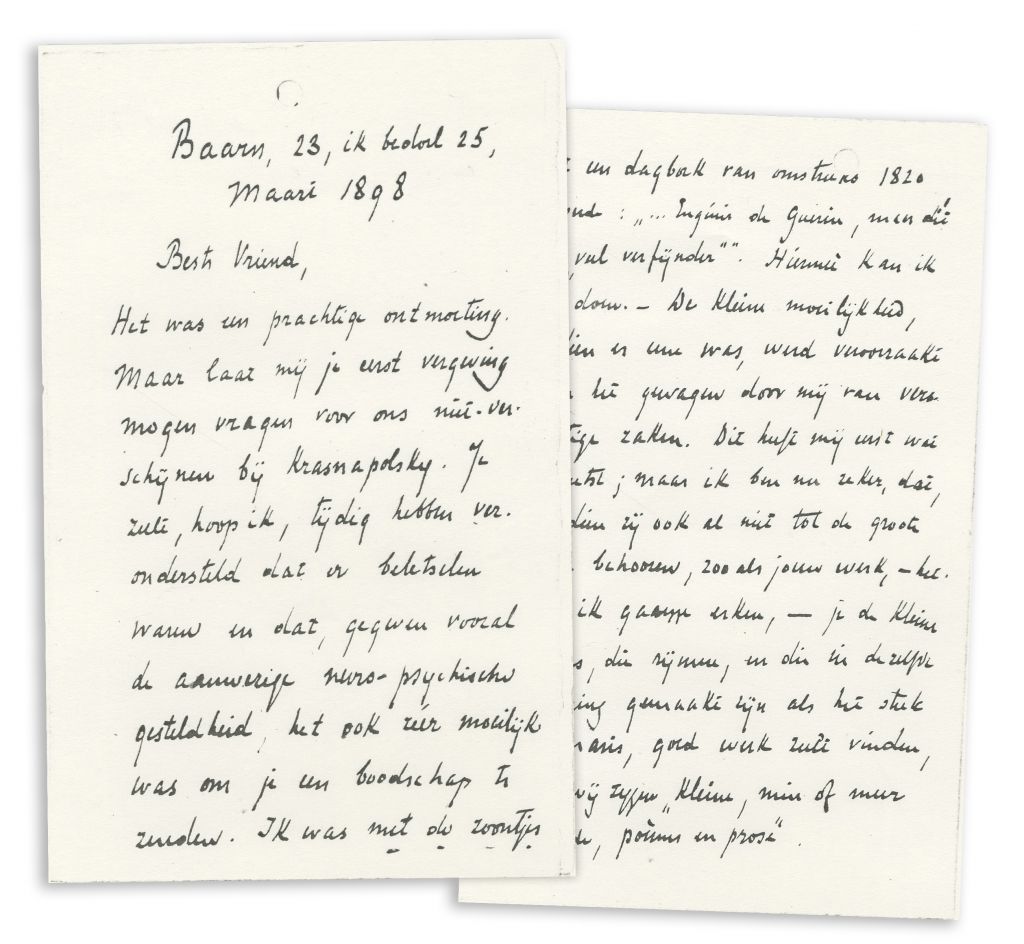 Baarn, 23, ik bedoel 25,
Maart 1898
Beste Vriend,
Het was een prachtige ontmoeting.
Maar laat mij je eerst vergeving
mogen vragen voor ons niet-ver-
schijnen bij Krasnapolsky. Je
zult, hoop ik, tijdig hebben ver-
ondersteld dat er beletselen
waren en dat, gegeven vooral
de aanwezige nevro-psychische
gesteldheid, het ook zéér moeilijk
was om je een boodschap te
zenden. Ik was met de zoontjes
een dagboek van omstreeks 1820
: „... Eugénie de Guérin, maar dàt
veel verfijnder"". Hiermeê kan ik
doen. — De kleine moeilijkheid,
er eene was, werd veroorzaakt
het gewagen door mij van vers-
zaken. Dit heeft mij eerst wat
; maar ik ben nu zeker, dat,
zij ook al niet tot de groote
behooren, zooals jouw werk, — het-
ik gaarne erken, — je de kleine
, die rijmen, en die in dezelfde
gemaakt zijn als het stuk
, goed werk zult vinden,
wij zeggen „kleine, min of meer
, poëmes en prose".